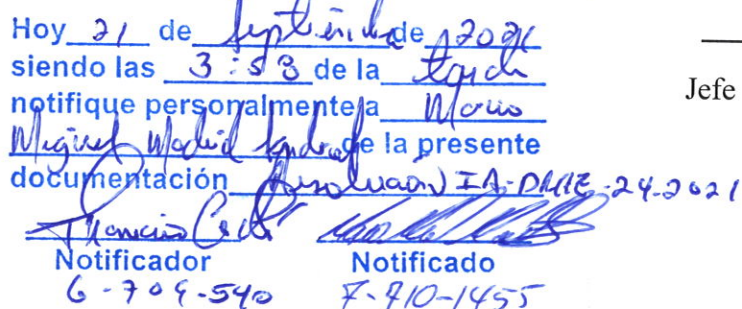 Hoy 21 de Septiembre de 2021
siendo las 3:53 de la tarde
notifique personalmente a Mario
Miguel Madrid de la presente
documentación Resolución IA-DRHE-24-2021
Notificador Notificado
6-709-540 7-710-1455
Jefe